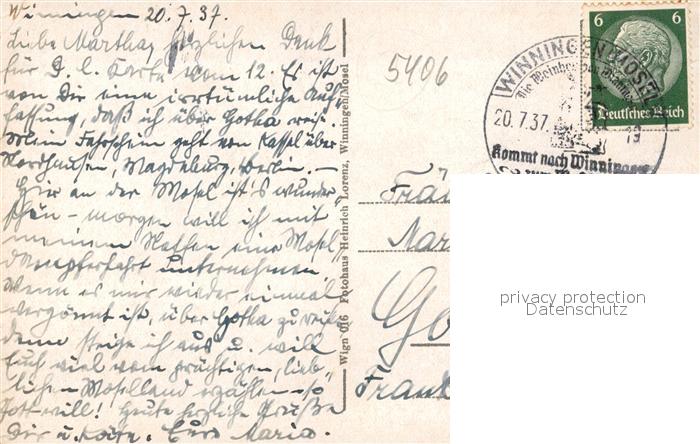 Winningen 20.7.37.
Liebe Martha, herzlichen Dank
für D. l. Karte vom 12. Es ist
von Dir eine irrtümliche Auf-
fassung, daß ich über Gotha reise.
Mein Fahrschein geht von Kassel über
Nordhausen, Magdeburg, Berlin. —
Hier an der Mosel ist's wunder-
schön – morgen will ich mit
meinem Neffen eine Mosel-
dampferfahrt unternehmen
Wenn es mir wieder einmal
vergönnt ist, über Gotha zu reisen
dann steige ich aus u. will
Euch viel vom prächtigen, lieb-
lichen Moselland erzählen – so
Gott will! Heute herzliche Grüße
Dir u. Käte. Eure Maria.
Wign 016 Fotohaus Heinrich Lorenz, Winningen/Mosel
5406
6 6
Deutsches Reich
WINNINGEN (MOSEL)
20.7.37. 19
Kommt nach Winningen
Fräu
Mar
Go
Frank
privacy protection
Datenschutz